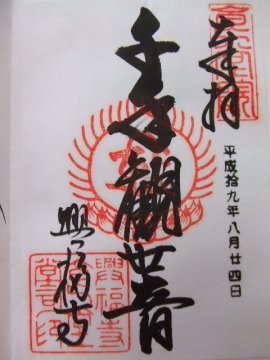 奉拝
平成拾九年八月廿四日
千手観世音
興福寺